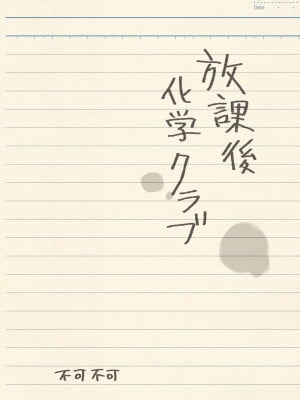 Date
放課後
化学クラブ
不可不可